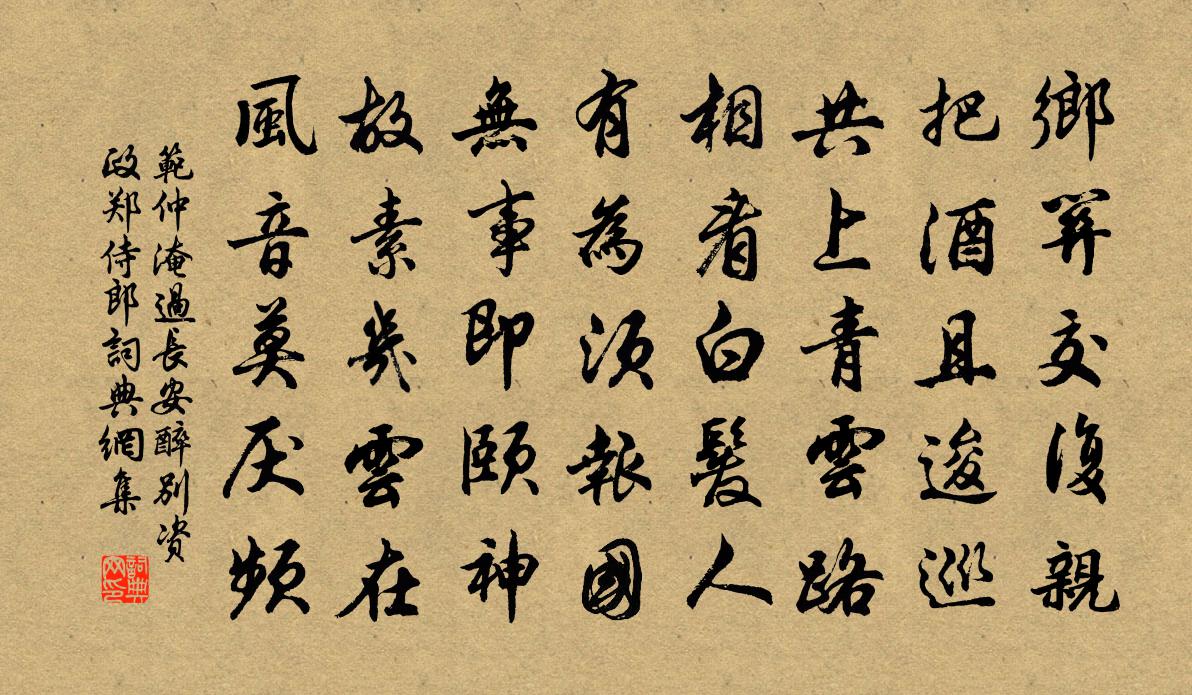 鄉關交復親
把酒且逡巡
共上青雲路
相看白髮人
有為須報國
無事即頤神
故素幾雲在
風音莫厌頻
範仲淹過長安醉別資
政郑侍郎詞典網集
詞典
网印